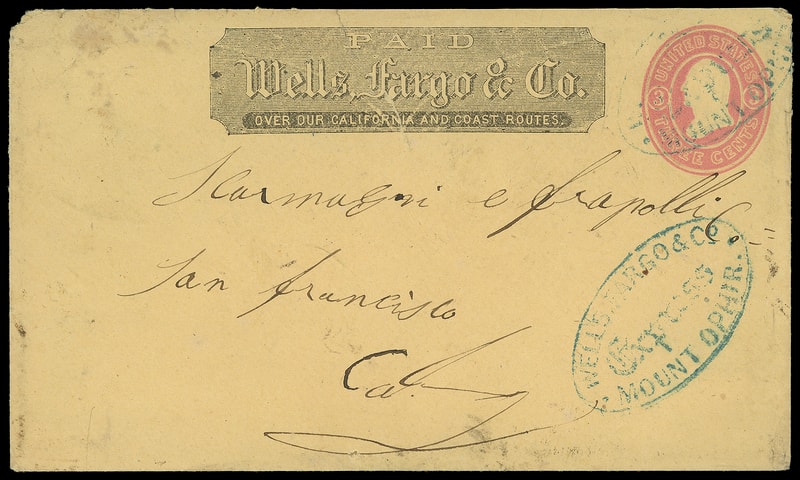 PAID
Wells, Fargo & Co.
OVER OUR CALIFORNIA AND COAST ROUTES.
UNITED STATES
3 3
THREE CENTS
MOUNT OPHIR
Scarmagni e frapolli Co.
San francisco
Cal.
WELLS, FARGO & Co.
Express
MOUNT OPHIR.